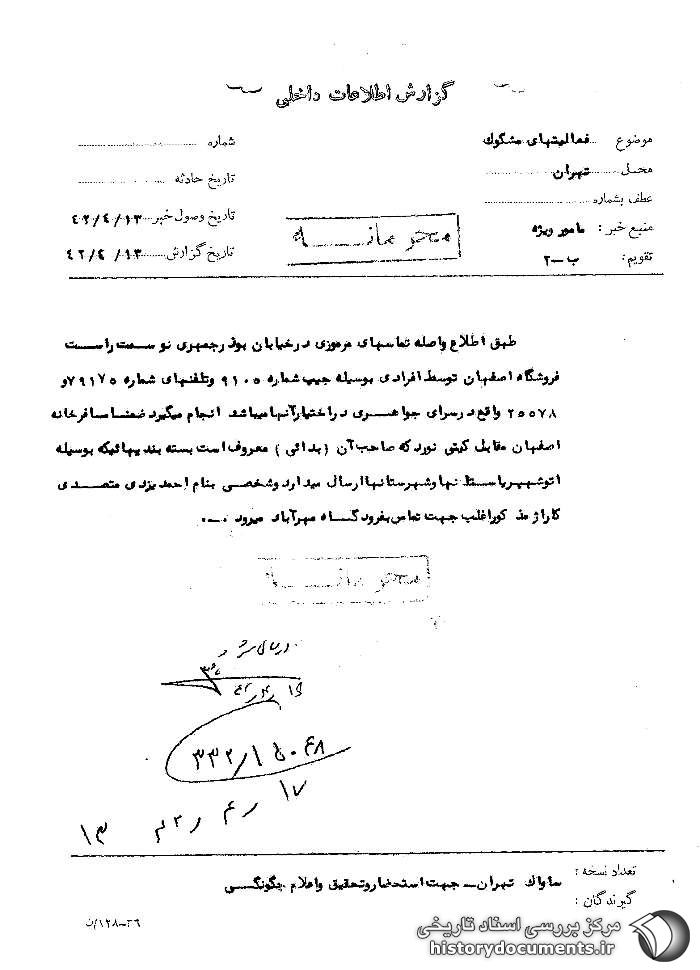 گزارش اطلاعات داخلی
موضوع فعالیتهای مشکوک
شماره
محل تهران
تاریخ حادثه
عطف بشماره
تاریخ وصول خبر ۴۲/۴/۱۳
منبع خبر : مامور ویژه
تاریخ گزارش ۴۲/۴/۱۳
تقویم : ب-۲
محرمانه
طبق اطلاع واصله تماسهای مرموزی در خیابان بوذرجمهری نو سمت راست
فروشگاه اصفهان توسط افرادی بوسیله جیپ شماره ۹۱۰۵ وتلفنهای شماره ۷۹۱۷۵ و
۲۵۵۷۸ واقع در سرای جواهری در اختیار آنها میباشد انجام میگیرد ضمنا مسافرخانه
اصفهان مقابل گیتی نورد که صاحب آن (بدائی) معروف است بسته بندیهائیکه بوسیله
اتوشهپر باستانها وشهرستانها ارسال میدارد وشخصی بنام احمد یزدی متصدی
گاراژ مذکور اغلب جهت تماس بفرودگاه مهرآباد میرود
محرمانه
۳۳۲/۱۵۰۴۸
۱۷ ر ۴ ر ۴۲
۱۳
تعداد نسخه :
گیرندگان :
ساواک تهران - جهت استحضار وتحقیق واعلام چگونگی
۱۲۸-۳۶/ن
مرکز بررسی اسناد تاریخی
historydocuments.ir